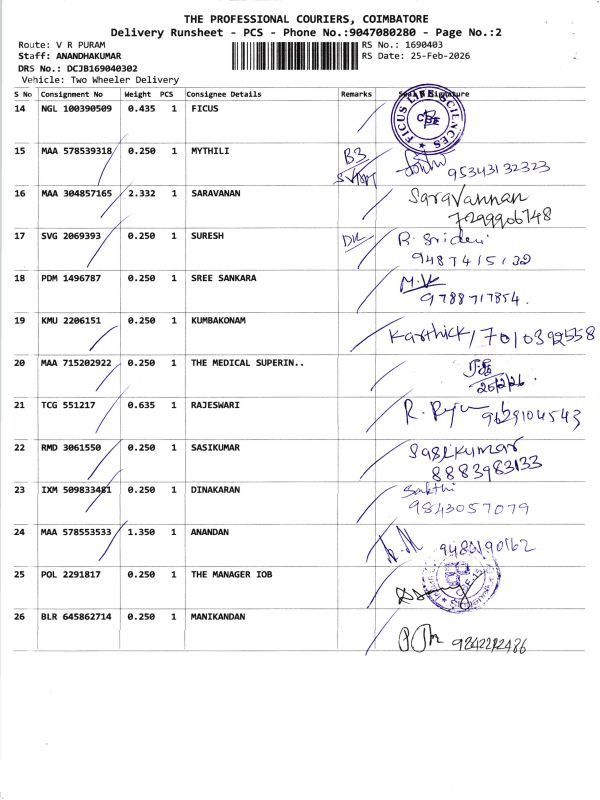 THE PROFESSIONAL COURIERS, COIMBATORE
Delivery Runsheet - PCS - Phone No.:9047080280 - Page No.:2
Route: V R PURAM
RS No.: 1690403
Staff: ANANDHAKUMAR
RS Date: 25-Feb-2026
DRS No.: DCJB169040302
Vehicle: Two Wheeler Delivery
S No Consignment No Weight PCS Consignee Details Remarks Seal & Signature
14 NGL 100390509 0.435 1 FICUS FICUS LIFE SCIENCES CBE
15 MAA 578539318 0.250 1 MYTHILI B3 95343132323
16 MAA 304857165 2.332 1 SARAVANAN Saravannan
7299906748
17 SVG 2069393 0.250 1 SURESH R. Sridevi
9487415132
18 PDM 1496787 0.250 1 SREE SANKARA M.V
9788717854.
19 KMU 2206151 0.250 1 KUMBAKONAM Karthick/7010392558
20 MAA 715202922 0.250 1 THE MEDICAL SUPERIN..
25/2/26.
21 TCG 551217 0.635 1 RAJESWARI 9629104543
22 RMD 3061550 0.250 1 SASIKUMAR Sasikumar
8883983133
23 IXM 509833481 0.250 1 DINAKARAN Sakthi
9843057079
24 MAA 578553533 1.350 1 ANANDAN
25 POL 2291817 0.250 1 THE MANAGER IOB
26 BLR 645862714 0.250 1 MANIKANDAN